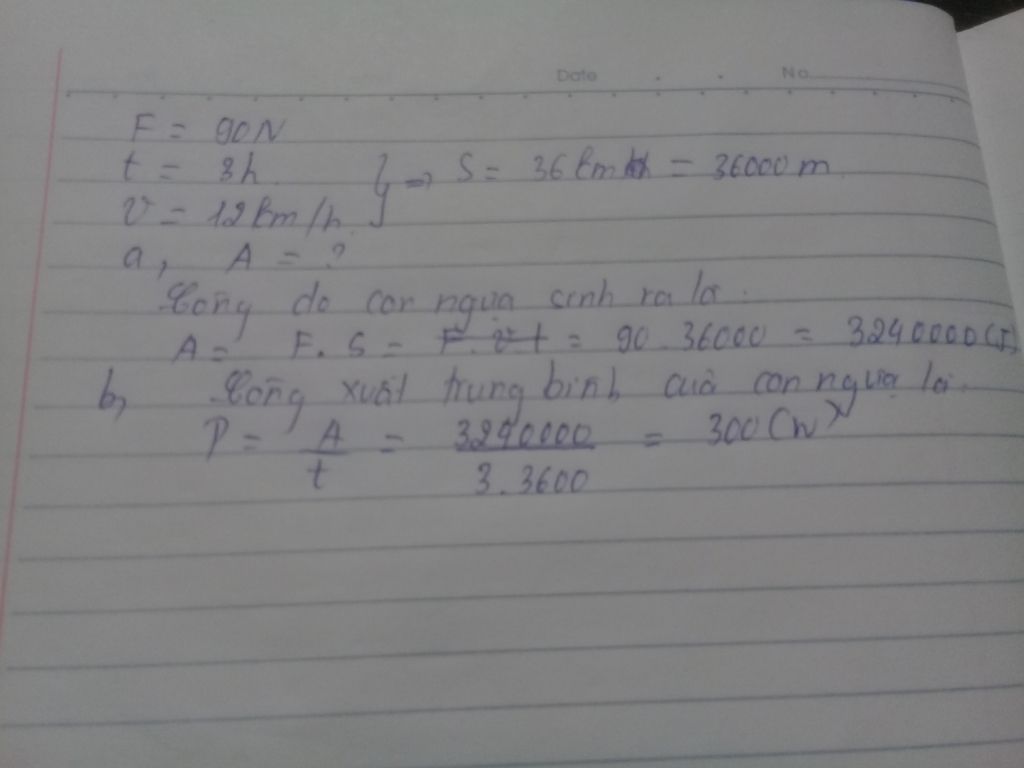 Date No
F = 90N
t = 3h
v = 12km/h } => S = 36 km = 36000 m
a, A = ?
Công do con ngựa sinh ra là.
A = F. S = F. v. t = 90. 36000 = 3240000 (J)
b, Công xuất trung bình của con ngựa là.
P = A/t = 3240000/3.3600 = 300 (W)